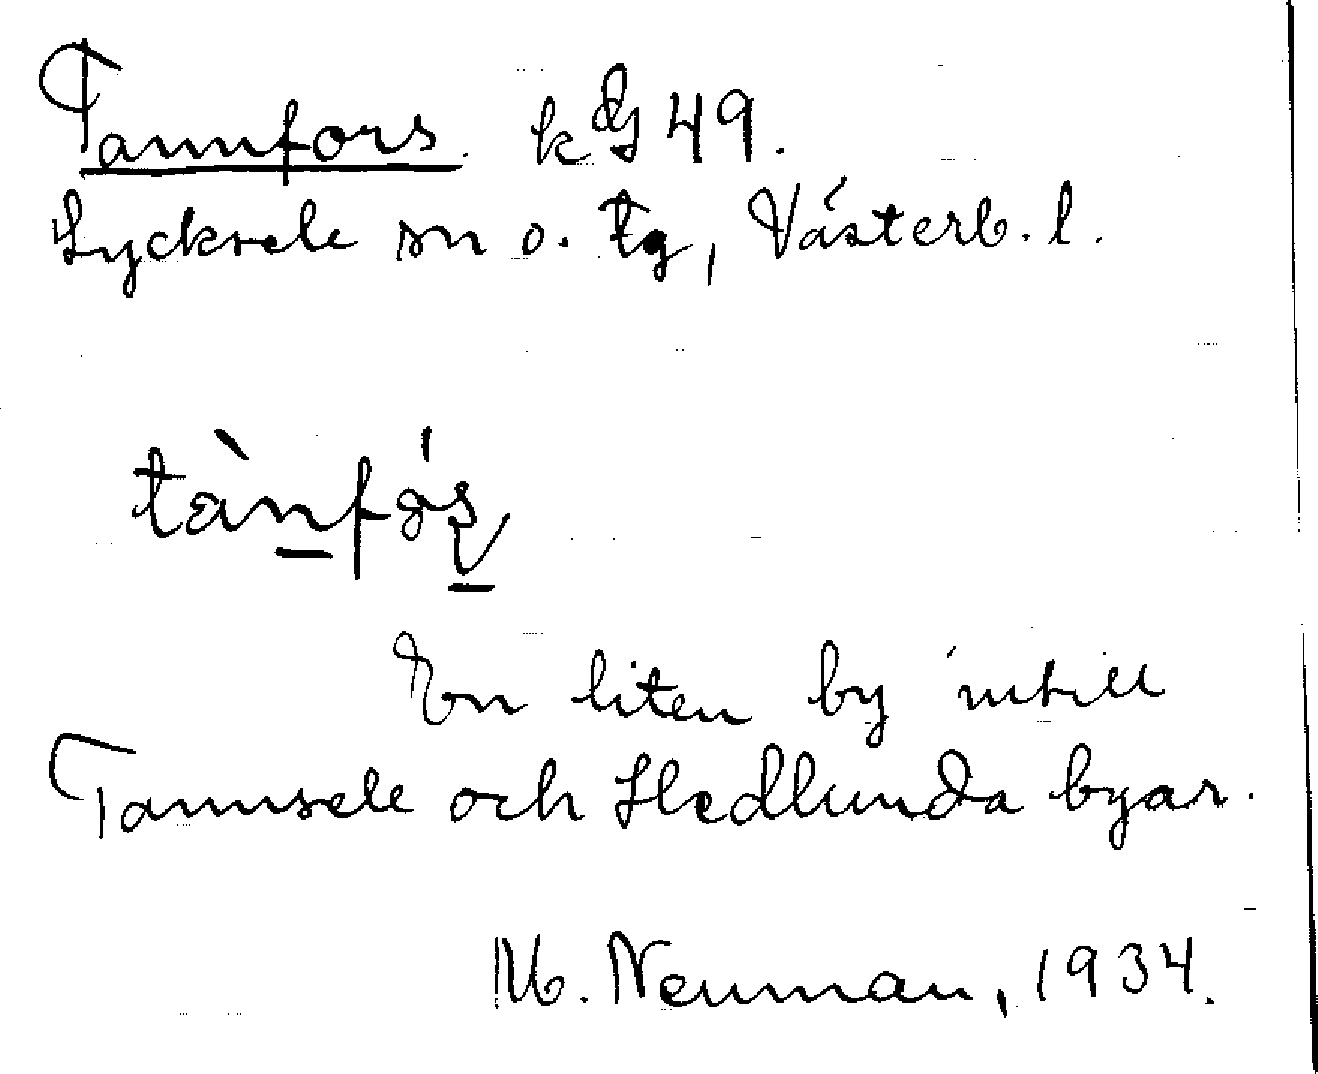 Tannfors. k 49.
Lycksele sn o. tg, Västerb. l.
En liten by intill
Tannsele och Hedlunda byar.
M. Neuman, 1934.